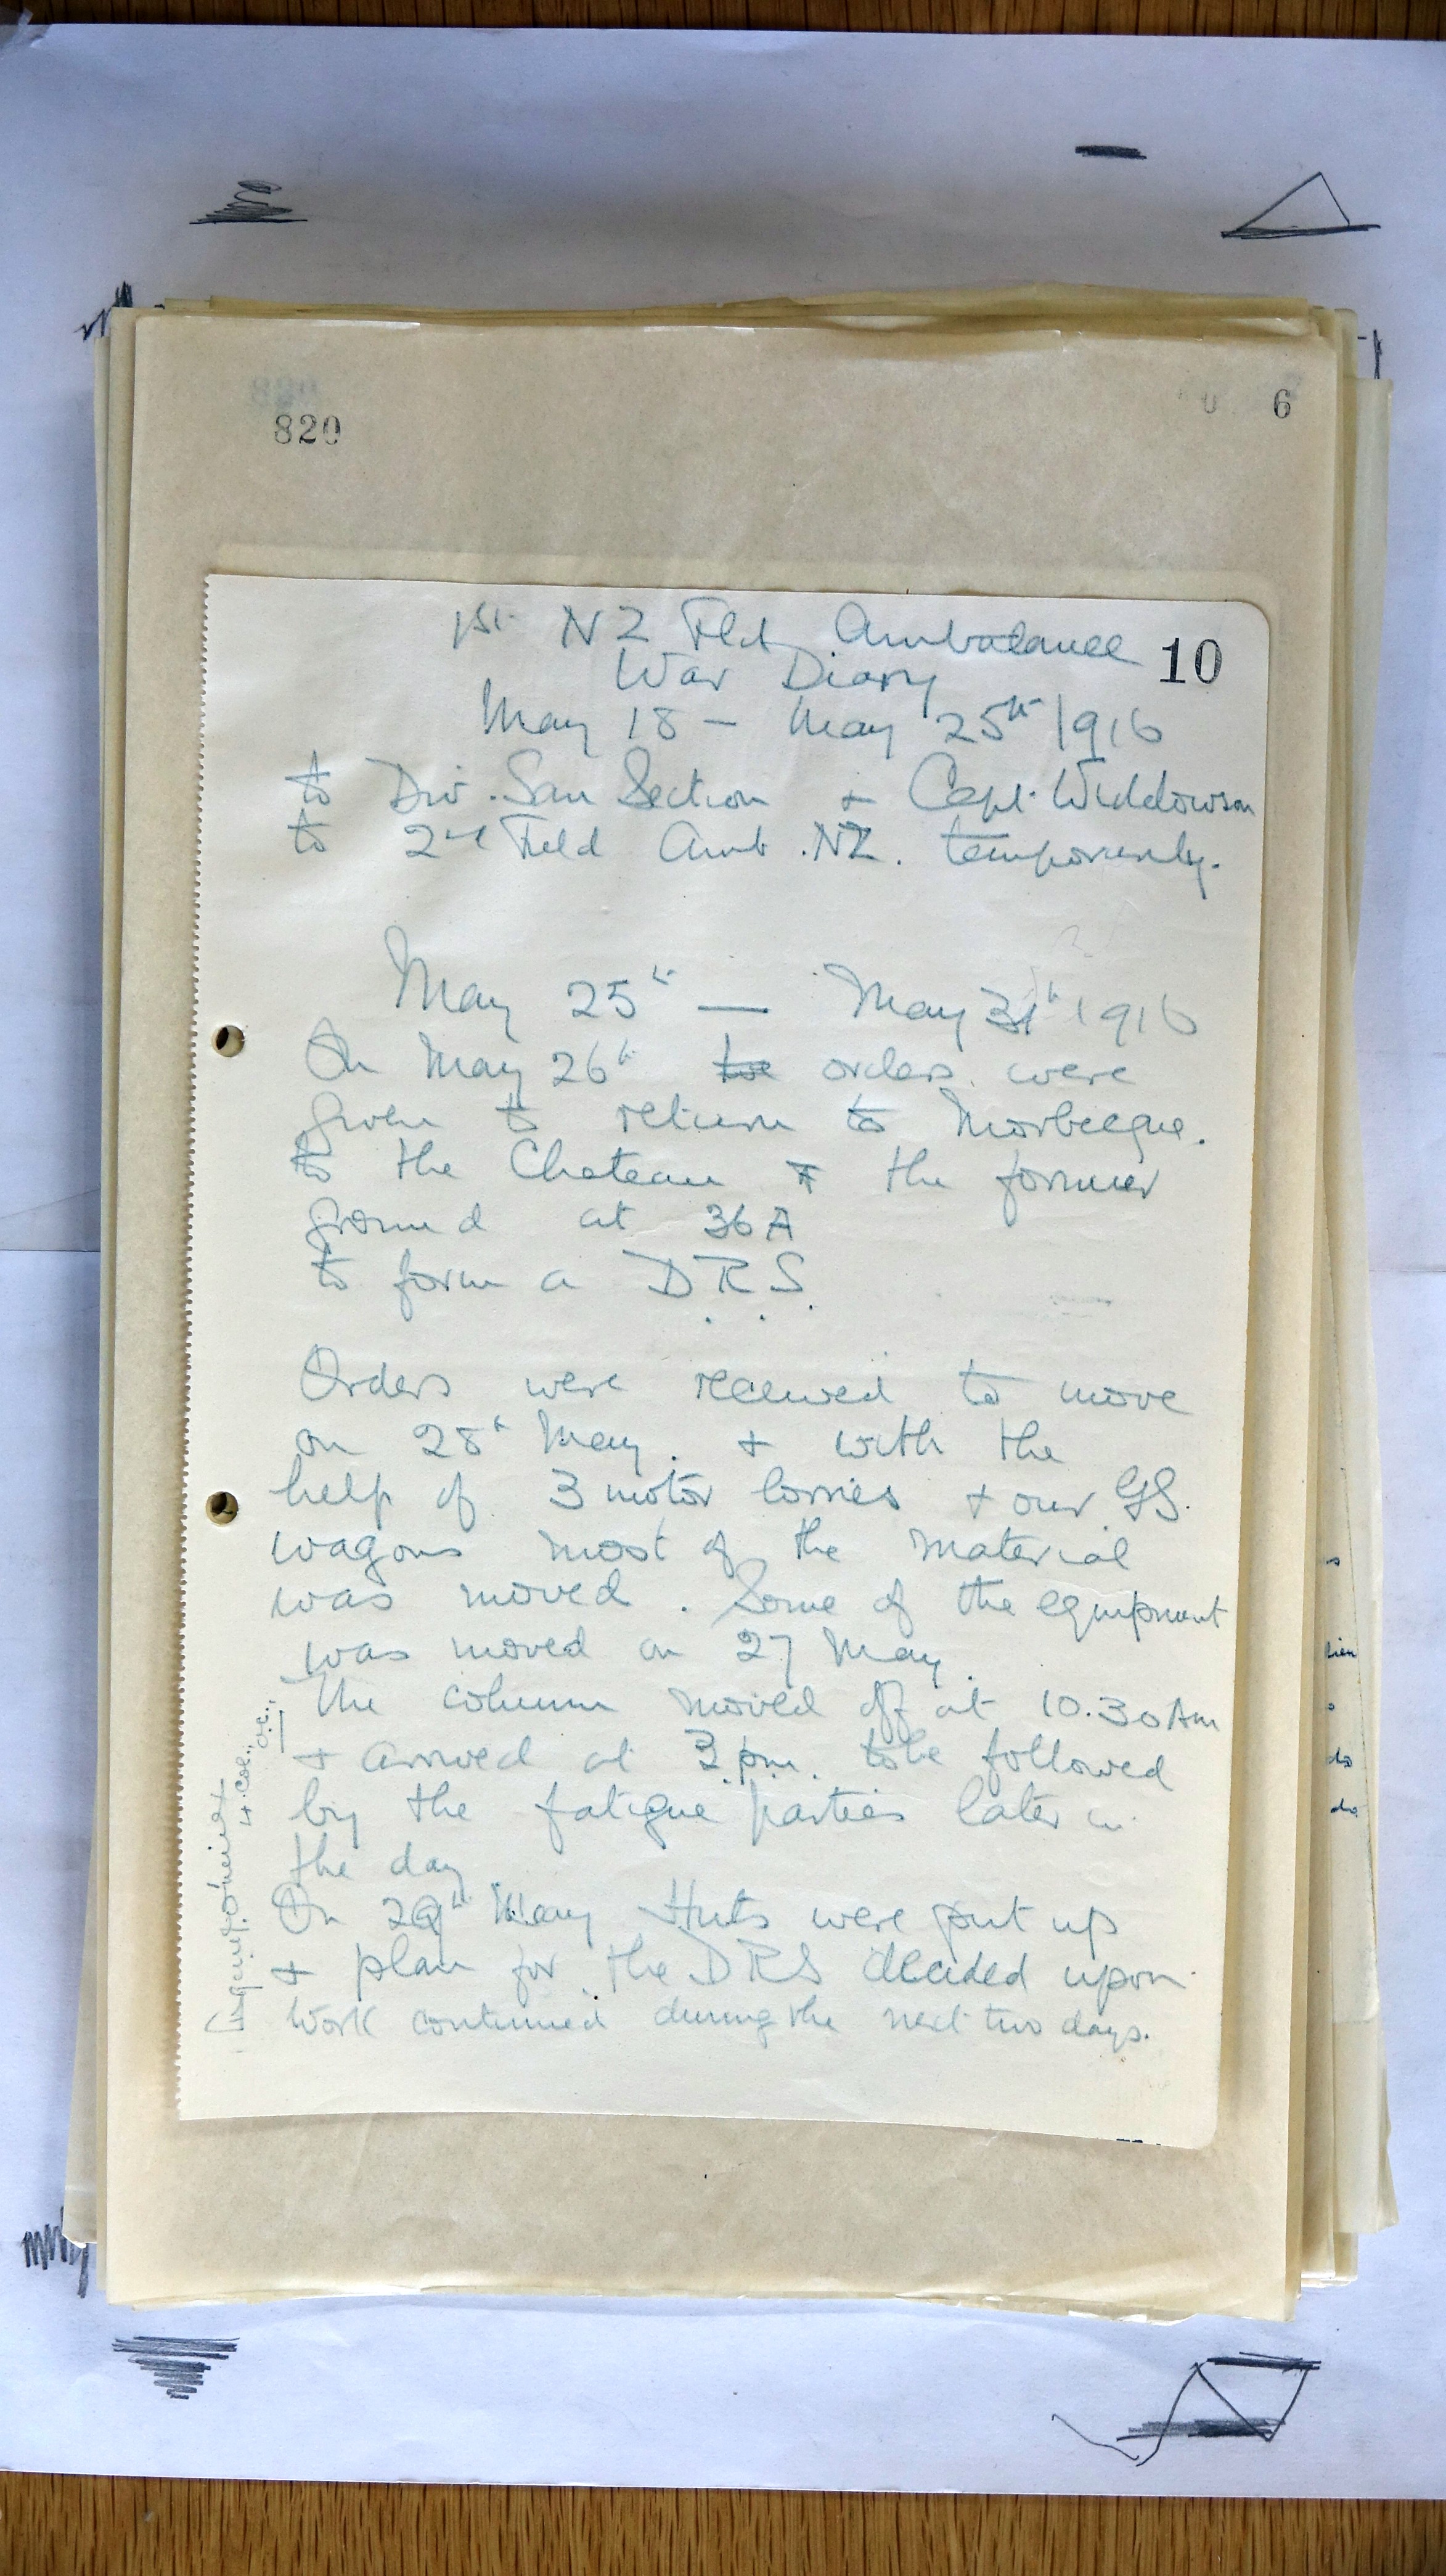 820
6
10
1st NZ Fld Ambulance
War Diary
May 18 - May 25th 1916
to Div. San Section + Capt. Widdowson
to 2nd Field Amb. NZ. temporarily.
May 25th — May 31th 1916
On May 26th orders were
given to return to Morbecque.
to the Chateau & the former
ground at 36A
to form a DRS.
Orders were received to move
on 28th May. + with the
help of 3 motor lorries + our GS.
wagons most of the material
was moved. Some of the equipment
was moved on 27 May.
The column moved off at 10.30 Am
+ arrived at 3 pm. to be followed
by the fatigue parties later in
the day
On 29th May Huts were put up
+ plan for the DRS decided upon
Work continued during the next two days.
Lt. Col.
O.C.